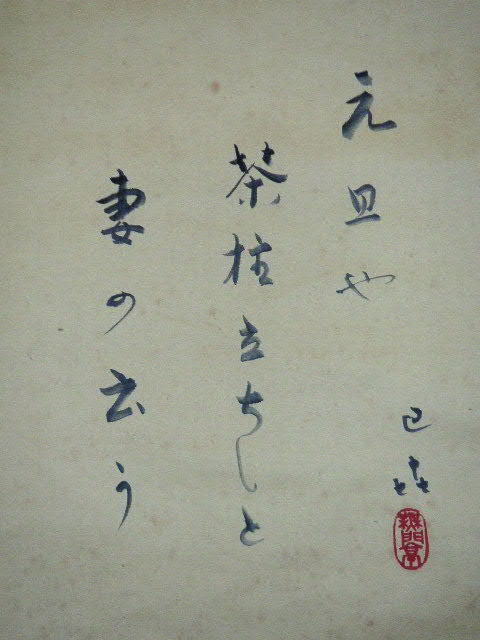 元旦や
茶柱立ちしと
妻の云う
巳㐂